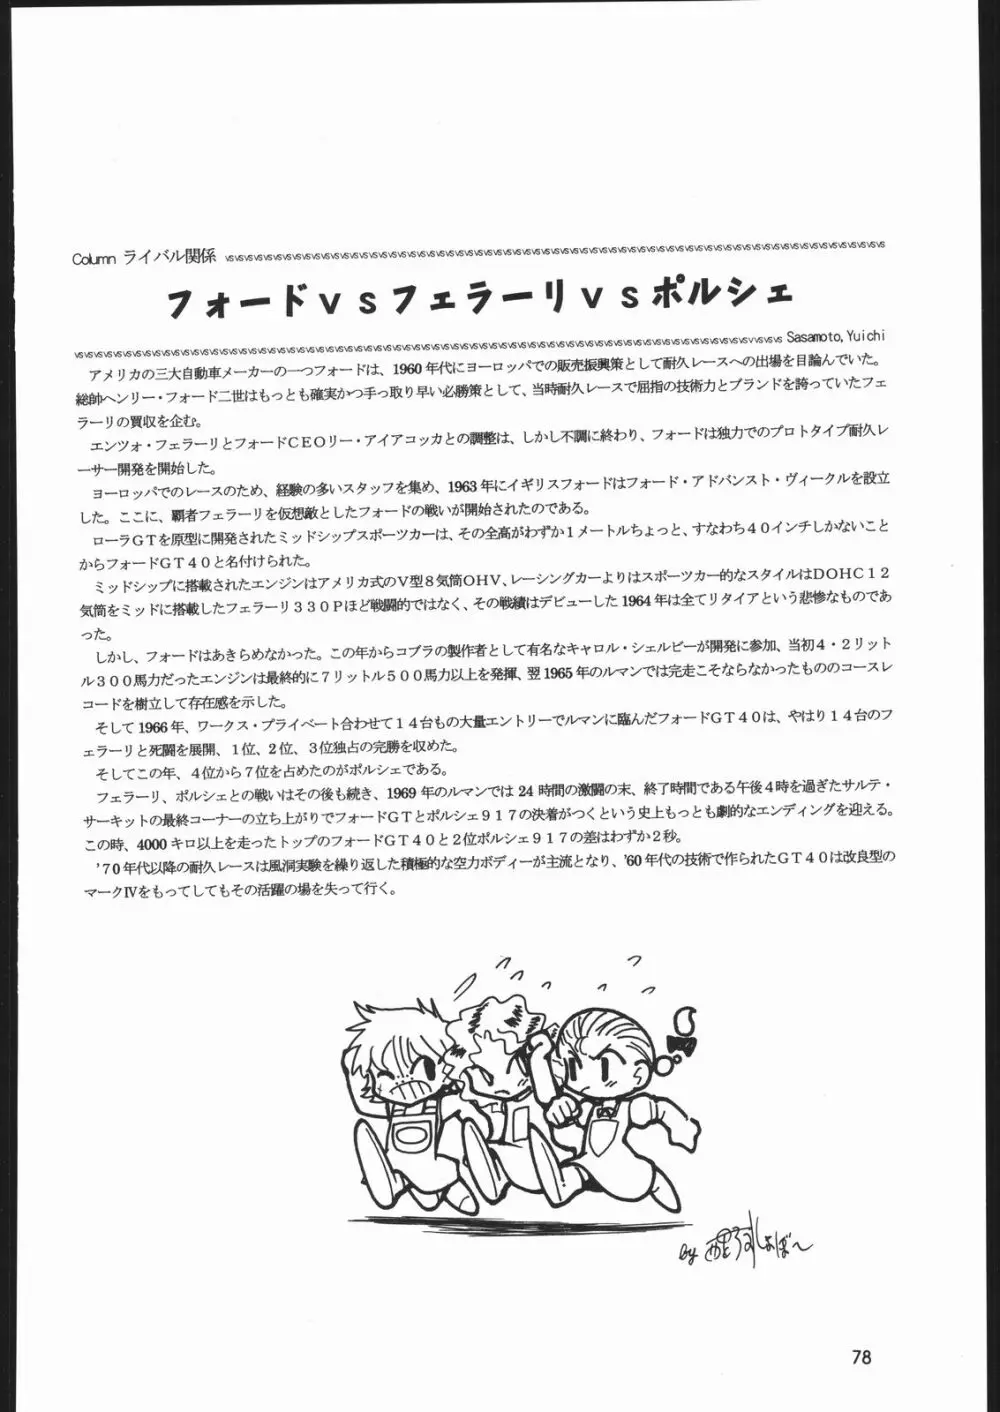 Column ライバル関係 vsvsvsvsvsvsvsvsvsvsvsvsvsvsvsvsvsvsvsvsvsvsvsvsvsvsvsvsvsvsvsvsvsvsvsvsvsvsvsvsvsvsvsvs
フォードvsフェラーリvsポルシェ
vsvsvsvsvsvsvsvsvsvsvsvsvsvsvsvsvsvsvsvsvsvsvsvsvsvsvsvsvsvsvsvsvsvsvsvsvsvsvsvsvsvsvsvs Sasamoto,Yuichi
アメリカの三大自動車メーカーの一つフォードは、1960 年代にヨーロッパでの販売振興策として耐久レースへの出場を目論んでいた。
総帥ヘンリー・フォード二世はもっとも確実かつ手っ取り早い必勝策として、当時耐久レースで屈指の技術力とブランドを誇っていたフェ
ラーリの買収を企む。
エンツォ・フェラーリとフォードCEOリー・アイアコッカとの調整は、しかし不調に終わり、フォードは独力でのプロトタイプ耐久レ
ーサー開発を開始した。
ヨーロッパでのレースのため、経験の多いスタッフを集め、1963 年にイギリスフォードはフォード・アドバンスト・ヴィークルを設立
した。ここに、覇者フェラーリを仮想敵としたフォードの戦いが開始されたのである。
ローラGTを原型に開発されたミッドシップスポーツカーは、その全高がわずか1メートルちょっと、すなわち40インチしかないこと
からフォードGT40と名付けられた。
ミッドシップに搭載されたエンジンはアメリカ式のV型8気筒OHV、レーシングカーよりはスポーツカー的なスタイルはDOHC12
気筒をミッドに搭載したフェラーリ330Pほど戦闘的ではなく、その戦績はデビューした 1964 年は全てリタイアという悲惨なものであ
った。
しかし、フォードはあきらめなかった。この年からコブラの製作者として有名なキャロル・シェルビーが開発に参加、当初4・2リット
ル300馬力だったエンジンは最終的に7リットル500馬力以上を発揮、翌 1965 年のルマンでは完走こそならなかったもののコースレ
コードを樹立して存在感を示した。
そして 1966 年、ワークス・プライベート合わせて14台もの大量エントリーでルマンに臨んだフォードGT40は、やはり14台のフ
ェラーリと死闘を展開、1位、2位、3位独占の完勝を収めた。
そしてこの年、4位から7位を占めたのがポルシェである。
フェラーリ、ポルシェとの戦いはその後も続き、1969 年のルマンでは 24 時間の激闘の末、終了時間である午後4時を過ぎたサルテ・
サーキットの最終コーナーの立ち上がりでフォードGTとポルシェ917の決着がつくという史上もっとも劇的なエンディングを迎える。
この時、4000 キロ以上を走ったトップのフォードGT40と2位ポルシェ917の差はわずか2秒。
'70年代以降の耐久レースは風洞実験を繰り返した積極的な空力ボディーが主流となり、'60年代の技術で作られたGT40は改良型の
マークⅣをもってしてもその活躍の場を失って行く。
by
78